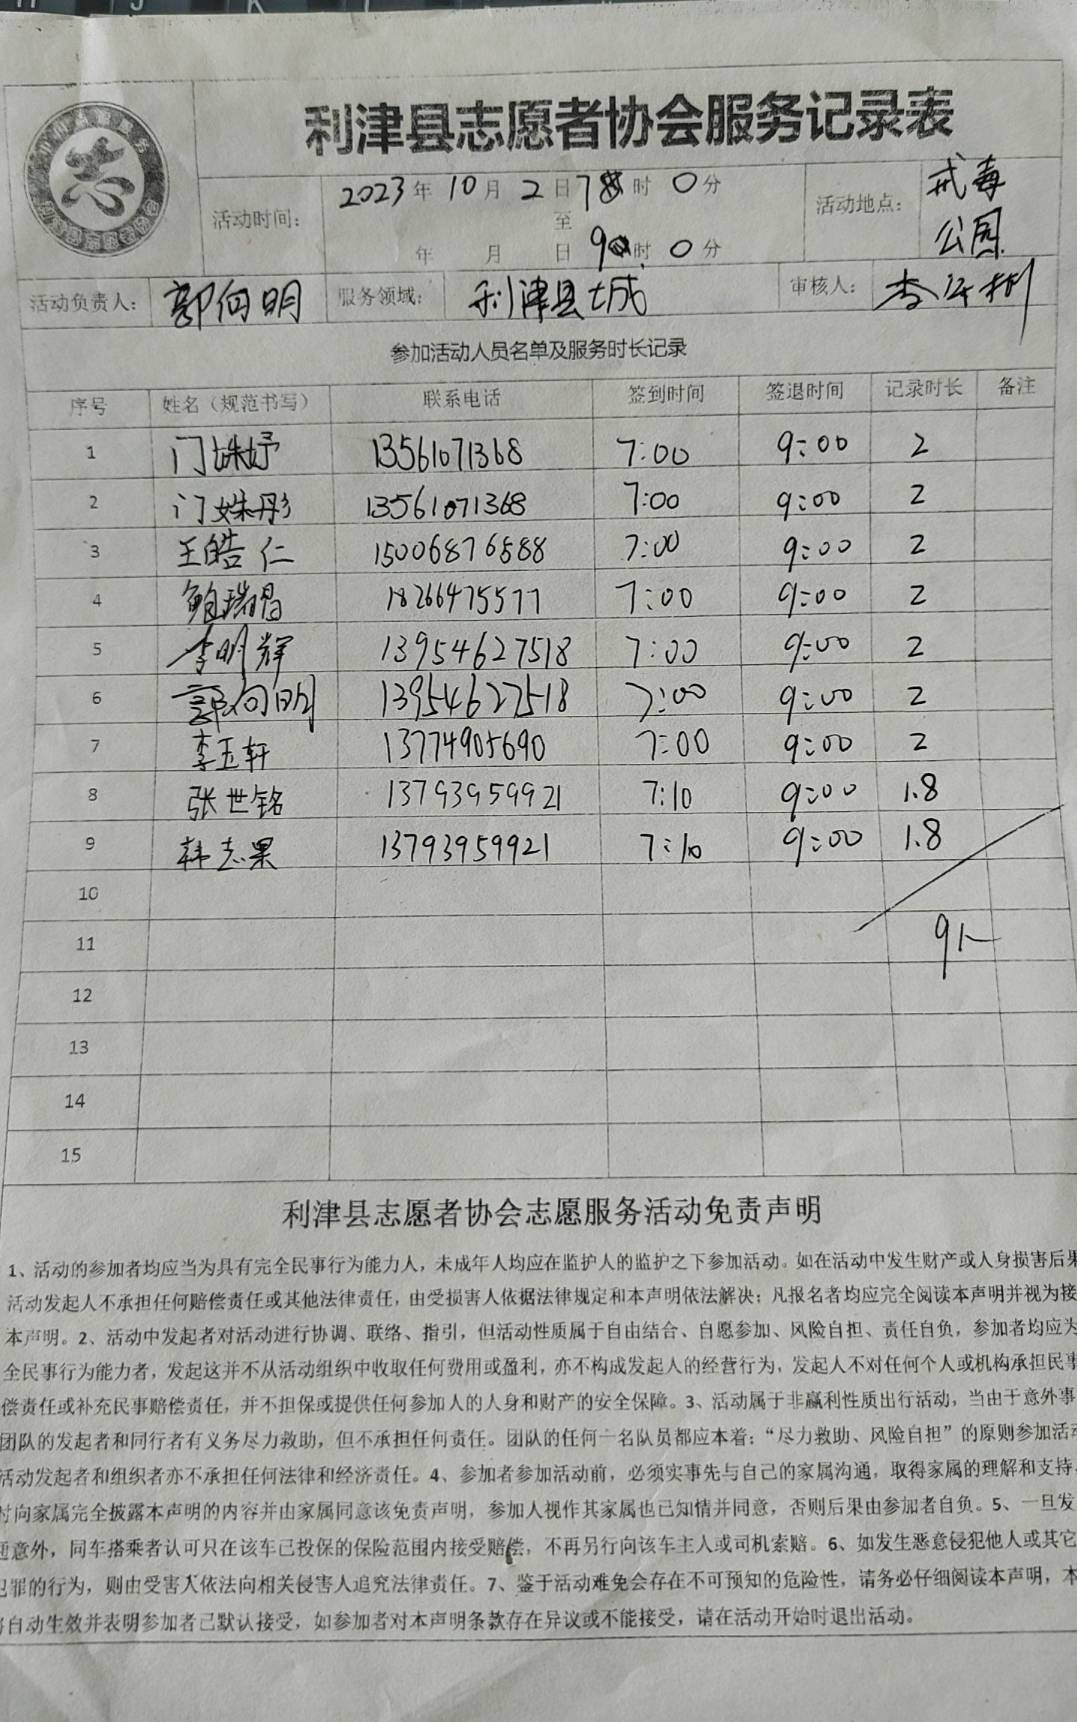 利津县志愿者协会服务记录表
志
活动时间： 2023年10月2日7时0分 活动地点： 戒毒
至 公园
年 月 日9时0分
活动负责人： 郭向明 服务领域： 利津县城 审核人：
参加活动人员名单及服务时长记录
序号 姓名（规范书写） 联系电话 签到时间 签退时间 记录时长 备注
1 门姝妤 13561071368 7:00 9:00 2
2 门姝彤 13561071368 7:00 9:00 2
3 王皓仁 15006876888 7:00 9:00 2
4 鲍瑞昌 18266475577 7:00 9:00 2
5 李明辉 13954627518 7:00 9:00 2
6 郭向明 13954627518 7:00 9:00 2
7 李玉轩 13774905690 7:00 9:00 2
8 张世铭 13793959921 7:10 9:00 1.8
9 韩志果 13793959921 7:10 9:00 1.8
10
11 9人
12
13
14
15
利津县志愿者协会志愿服务活动免责声明
1、活动的参加者均应当为具有完全民事行为能力人，未成年人均应在监护人的监护之下参加活动。如在活动中发生财产或人身损害后果
活动发起人不承担任何赔偿责任或其他法律责任，由受损害人依据法律规定和本声明依法解决；凡报名者均应完全阅读本声明并视为接
本声明。2、活动中发起者对活动进行协调、联络、指引，但活动性质属于自由结合、自愿参加、风险自担、责任自负，参加者均应为
全民事行为能力者，发起这并不从活动组织中收取任何费用或盈利，亦不构成发起人的经营行为，发起人不对任何个人或机构承担民事
偿责任或补充民事赔偿责任，并不担保或提供任何参加人的人身和财产的安全保障。3、活动属于非赢利性质出行活动，当由于意外事
团队的发起者和同行者有义务尽力救助，但不承担任何责任。团队的任何一名队员都应本着：“尽力救助、风险自担”的原则参加活动
活动发起者和组织者亦不承担任何法律和经济责任。4、参加者参加活动前，必须实事先与自己的家属沟通，取得家属的理解和支持，
时向家属完全披露本声明的内容并由家属同意该免责声明，参加人视作其家属也已知情并同意，否则后果由参加者自负。5、一旦发
通意外，同车搭乘者认可只在该车已投保的保险范围内接受赔偿，不再另行向该车主人或司机索赔。6、如发生恶意侵犯他人或其它
犯罪的行为，则由受害人依法向相关侵害人追究法律责任。7、鉴于活动难免会存在不可预知的危险性，请务必仔细阅读本声明，本
将自动生效并表明参加者已默认接受，如参加者对本声明条款存在异议或不能接受，请在活动开始时退出活动。